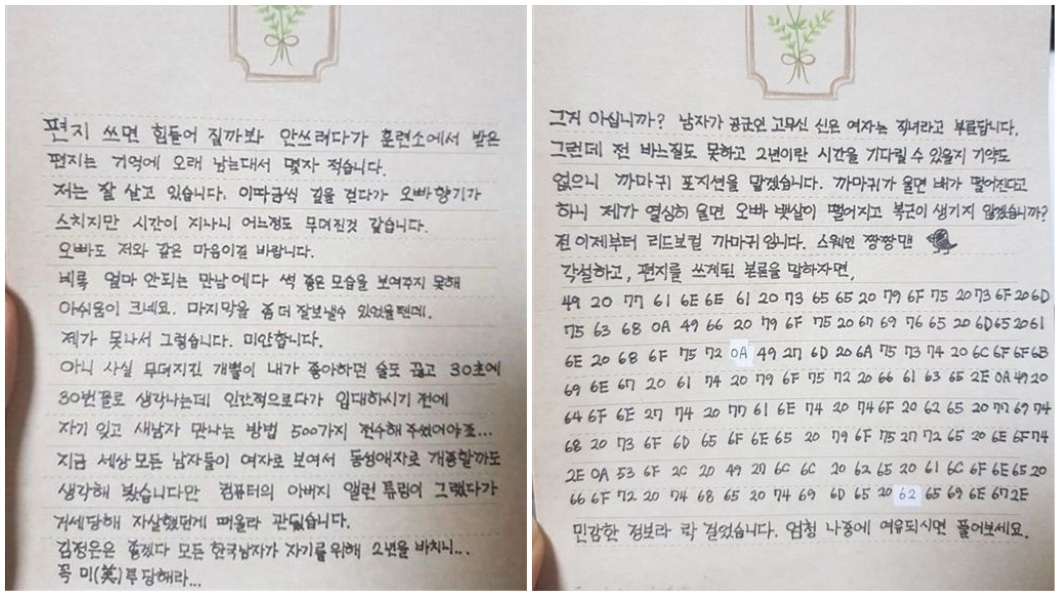 편지 쓰면 힘들어 질까봐 안쓰려다가 훈련소에서 받은
편지는 기억에 오래 남는대서 몇자 적습니다.
저는 잘 살고 있습니다. 이따금씩 길을 걷다가 오빠향기가
스치지만 시간이 지나니 어느정도 무뎌진것 같습니다.
오빠도 저와 같은 마음이길 바랍니다.
비록 얼마 안되는 만남에다 썩 좋은 모습을 보여주지 못해
아쉬움이 크네요. 마지막을 좀 더 잘보낼수 있었을텐데.
제가 못나서 그렇습니다. 미안합니다.
아니 사실 무뎌지긴 개뿔이 내가 좋아하던 술도 끊고 30초에
30번꼴로 생각나는데 인간적으로다가 입대하시기 전에
자기 잊고 새남자 만나는 방법 500가지 전수해 주셨어야죠...
지금 세상 모든 남자들이 여자로 보여서 동성애자로 개종할까도
생각해 봤습니다만 컴퓨터의 아버지 앨런 튜링이 그랬다가
거세당해 자살했던게 떠올라 관뒀습니다.
김정은은 좋겠다 모든 한국남자가 자기를 위해 2년을 바치니...
꼭 미(美)투 당해라...
그거 아십니까? 남자가 공군인 고무신 신은 여자는 직녀라고 부른답니다.
그런데 전 바느질도 못하고 2년이란 시간을 기다릴 수 있을지 기약도
없으니 까마귀 포지션을 맡겠습니다. 까마귀가 울면 배가 떨어진다고
하니 제가 열심히 울면 오빠 뱃살이 떨어지고 복근이 생기지 않겠습니까?
전 이제부터 리드보컬 까마귀입니다. 스웩앤 짱짱맨
각설하고, 편지를 쓰게된 본론을 말하자면,
49 20 77 61 6E 6E 61 20 73 65 65 20 79 6F 75 20 73 6F 20 6D
75 63 68 0A 49 66 20 79 6F 75 20 67 69 76 65 20 6D 65 20 61
6E 20 68 6F 75 72 0A 49 27 6D 20 6A 75 73 74 20 6C 6F 6F 6B
69 6E 67 20 61 74 20 79 6F 75 72 20 66 61 63 65 2E 0A 49 20
64 6F 6E 27 74 20 77 61 6E 74 20 74 6F 20 62 65 20 77 69 74
68 20 73 6F 6D 65 6F 6E 65 20 79 6F 75 27 72 65 20 6E 6F 74
2E 0A 53 6F 2C 20 49 27 6C 6C 20 62 65 20 61 6C 6F 6E 65 20
66 6F 72 20 74 68 65 20 74 69 6D 65 20 62 65 69 6E 67 2E
민감한 정보라 락 걸었습니다. 엄청 나중에 여유되시면 풀어보세요.